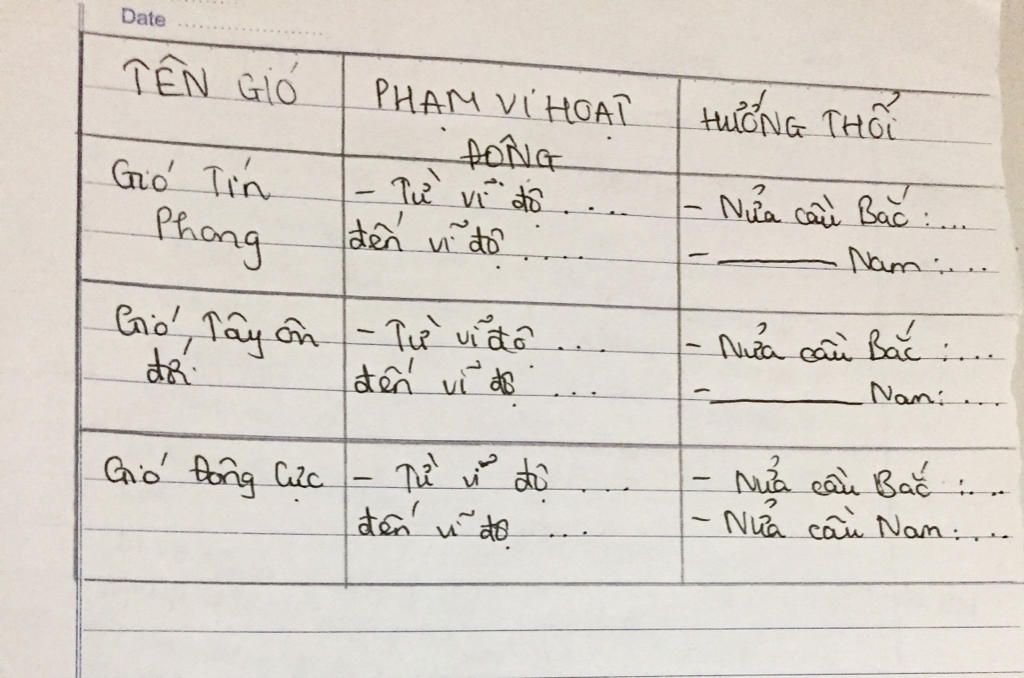 Date ....................
TÊN GIÓ
PHẠM VI HOẠT
ĐỘNG
HƯỚNG THỔI
Gió Tín
Phong
- Từ vĩ độ ....
đến vĩ độ .....
- Nửa cầu Bắc :...
- ———— Nam :...
Gió Tây ôn
đới
- Từ vĩ độ ...
đến vĩ độ ...
- Nửa cầu Bắc :...
- ———— Nam: ...
Gió Đông Cực
- Từ vĩ độ ...
đến vĩ độ ...
- Nửa cầu Bắc :...
- Nửa cầu Nam :...